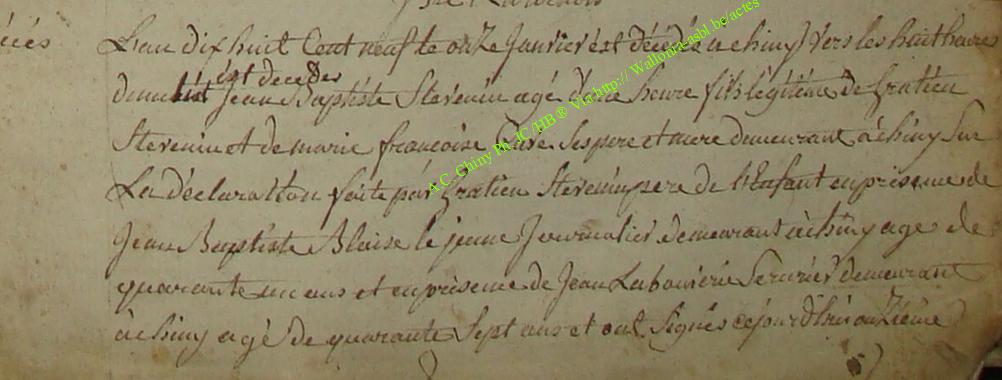 L'an dix huit Cent neuf le onze Janvier est décédé a chiny vers les huit heure
est deceder
du matin Jean Baptiste Stevenin agé d'une heure fils légitime de gratien
Stevenin et de marie francoise Ses pere et mere demeurant à chiny Sur
La déclaration faite par gratien Stevenin pere de l'Enfant en présence de
Jean Baptiste Blaise le jeune Journalier demeurant à chiny age de
quarante un ans et en présence de Jean Labouverie Serurier demeurant
à chiny agé de quarante Sept ans et ont Signés cejourd'hui onzième
A.C. Chiny Ph. JC/HB ® Via http://Wallonia-asbl.be/actes